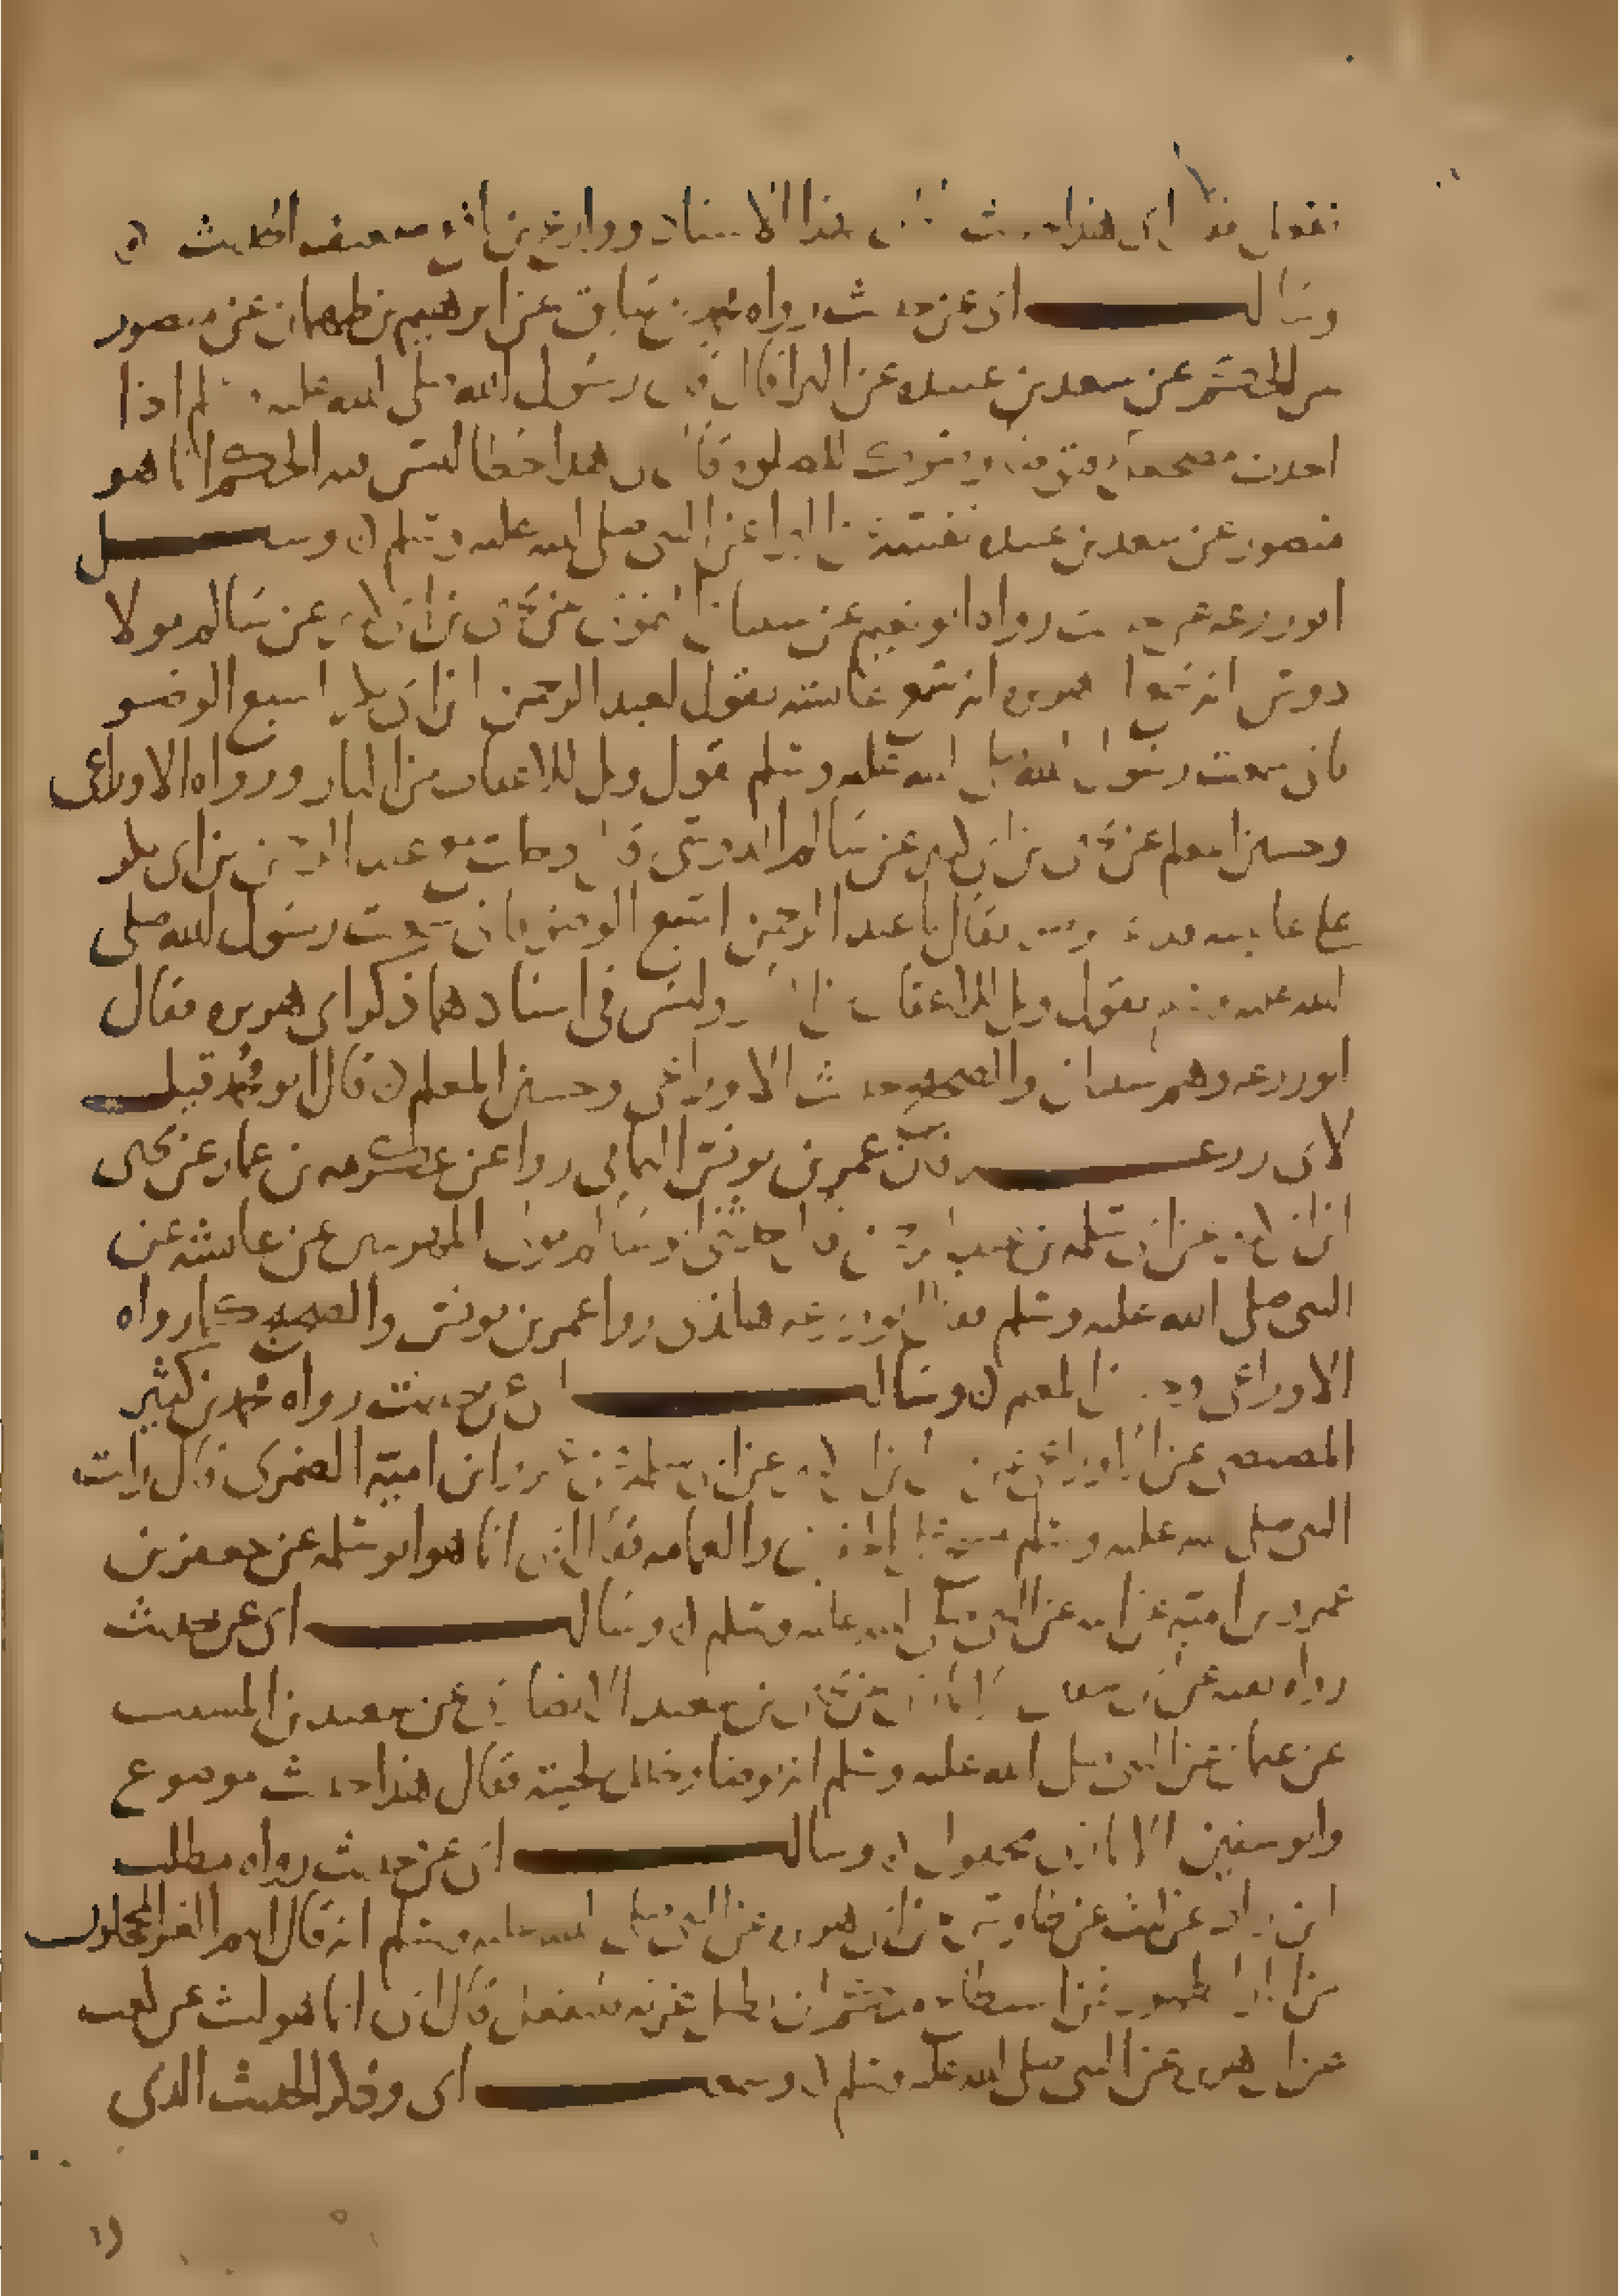 فقال ابي هذا حديث بهذا الاسناد ورافع بن ضعيف الحديث ه
وسالـــــت ابي عن حديث رواه محمد بن سابق عن ابرهيم بن طهمان عن منصور
عن الحكم عن سعد بن عبيده عن البرا قال قال رسول الله صلى الله عليه وسلم اذا
اخذت مضجعك فتوضا وضوك للصلوه قال ابي هذا خطا ليس فيه الحكم انما هو
منصور عن سعد بن عبيده نفسه عن البرا عن النبي صلى الله عليه وسلم ه وسيـــــل
ابو زرعه عن حديث رواه ابو نعيم عن شيبان النحوي عن يحيى بن ابي كثير عن سالم مولا
دوس انه سمع ابا هريره انه سمع عايشه تقول لعبد الرحمن بن ابي بكر اسبغ الوضو
فاني سمعت رسول الله صلى الله عليه وسلم يقول ويل للاعقاب من النار ورواه الاوزاعي
وحسين المعلم عن يحيى بن ابي كثير عن سالم الدوسي قال دخلت مع عبد الرحمن بن ابي بكر
على عايشه فدعا بوضو فقالت يا عبد الرحمن اسبغ الوضو فاني سمعت رسول الله صلى
الله عليه وسلم يقول ويل للاعقاب من النار وليس في اسنادهما ذكر ابي هريره فقال
ابو زرعه وهم شيبان والصحيح حديث الاوزاعي وحسين المعلم ه قال ابو محمد قيـــل
لابي زرعـــــه فان عمر بن يونس اليمامي روا عن عكرمه بن عمار عن يحيى
ابن ابي كثير عن ابي سلمه بن عبد الرحمن قال حدثني ابو سالم مولى المهريين عن عايشه عن
النبي صلى الله عليه وسلم فقال ابو زرعه هكذى روا عمر بن يونس والصحيح كما رواه
الاوزاعي وحسين المعلم ه وسالـــــت ابي عن حديث رواه محمد بن كثير
المصيصي عن الاوزاعي عن يحيى بن ابي كثير عن ابي سلمه عن عمرو بن اميه الضمري قال رايت
النبي صلى الله عليه وسلم مسح على الخفين والعمامه فقال ابي انما هو ابو سلمه عن جعفر بن
عمرو بن اميه عن ابيه عن النبي صلى الله عليه وسلم ه وسالـــــت ابي عن حديث
رواه بقيه عن ابي سفين الانماري عن يحيى بن سعيد الانصاري عن سعيد بن المسيب
عن عثمان عن النبي صلى الله عليه وسلم انه توضا وخلل لحيته فقال هذا حديث موضوع
وابو سفين الانماري مجهول ه وسالـــــت ابي عن حديث رواه مطلب
ابن زياد عن ليث عن طاوس عن ابي هريره عن النبي صلى الله عليه وسلم انه قال انهم الغر المحجلون
من اثار الطهور فمن استطاع منكم ان يطيل غرته فليفعل قال ابي انما هو ليث عن كعب
عن ابي هريره عن النبي صلى الله عليه وسلم ه وسمعـــــت ابي وذكر الحديث الذي